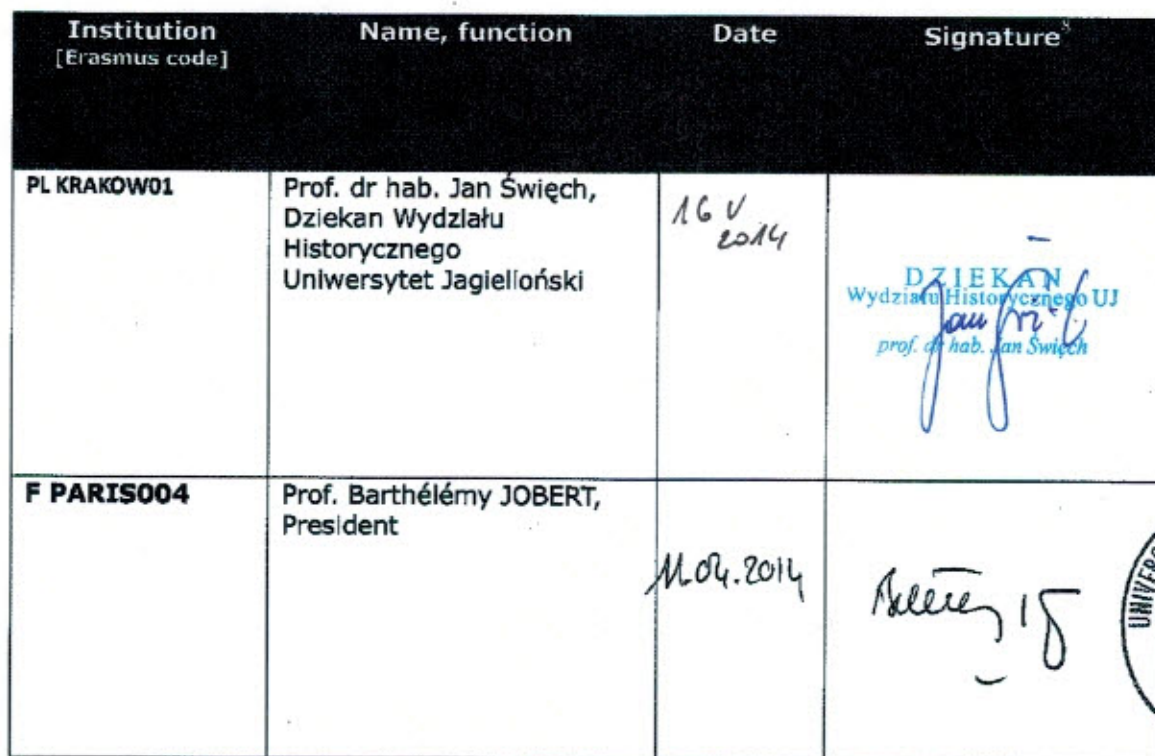 Institution
[Erasmus code]
Name, function
Date
Signature8
PL KRAKOW01
Prof. dr hab. Jan Święch,
Dziekan Wydziału
Historycznego
Uniwersytet Jagielloński
16 V
2014
DZIEKAN
Wydziału Historycznego UJ
prof. dr hab. Jan Święch
F PARIS004
Prof. Barthélémy JOBERT,
President
11.04.2014